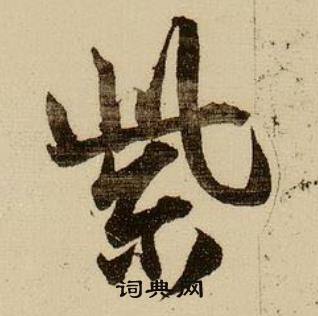 紫
词典网